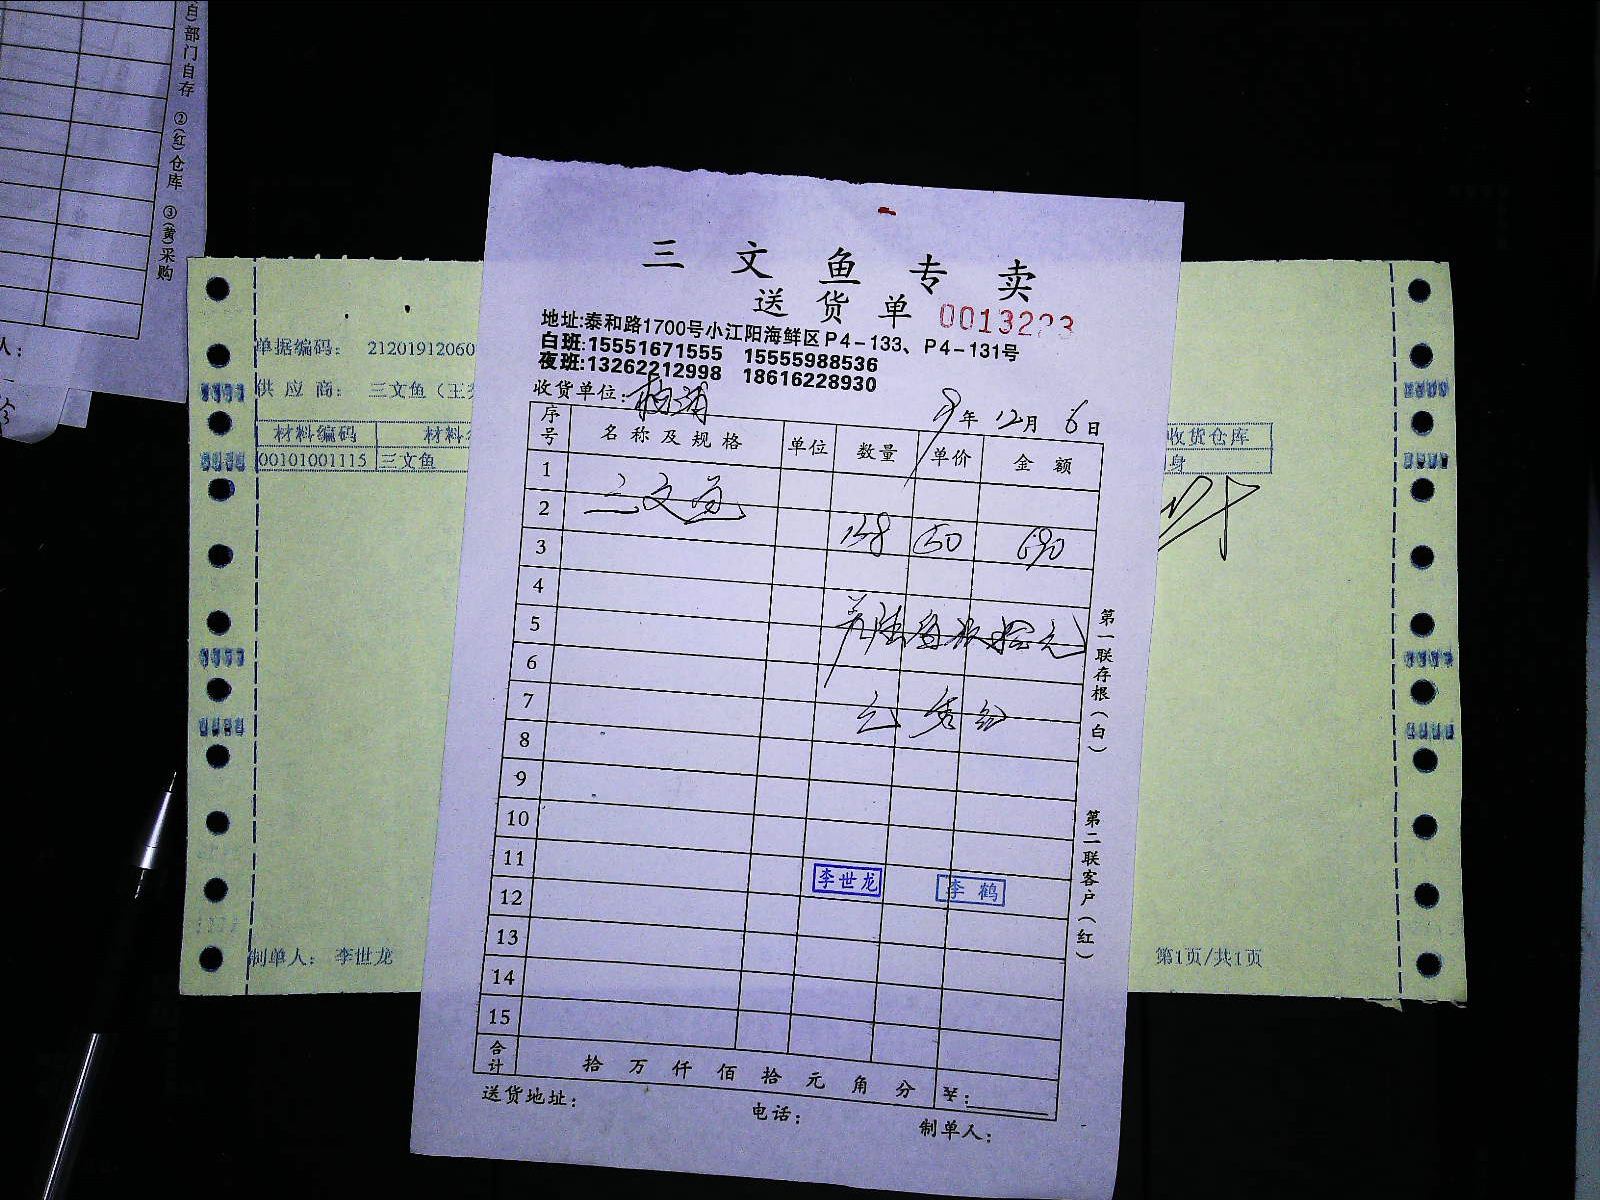 自)部门自存 ②(红)仓库 ③(黄)采购
人：
三文鱼专卖
送货单 0013223
地址:泰和路1700号小江阳海鲜区P4-133、P4-131号
白班:15551671555 15555988536
夜班:13262212998 18616228930
收货单位: 9年12月6日
序号 名称及规格 单位 数量 单价 金额
1
2 三文鱼
3 138 50 690
4
5
6
7
8
9
10
11 李世龙 李鹤
12
13
14
15
合计 拾 万 仟 佰 拾 元 角 分 ¥:
送货地址: 电话: 制单人:
第一联存根(白) 第二联客户(红)
单据编码: 21201912060
供应商: 三文鱼(王
材料编码 材料 收货仓库
00101001115 三文鱼 身
制单人: 李世龙 第1页/共1页